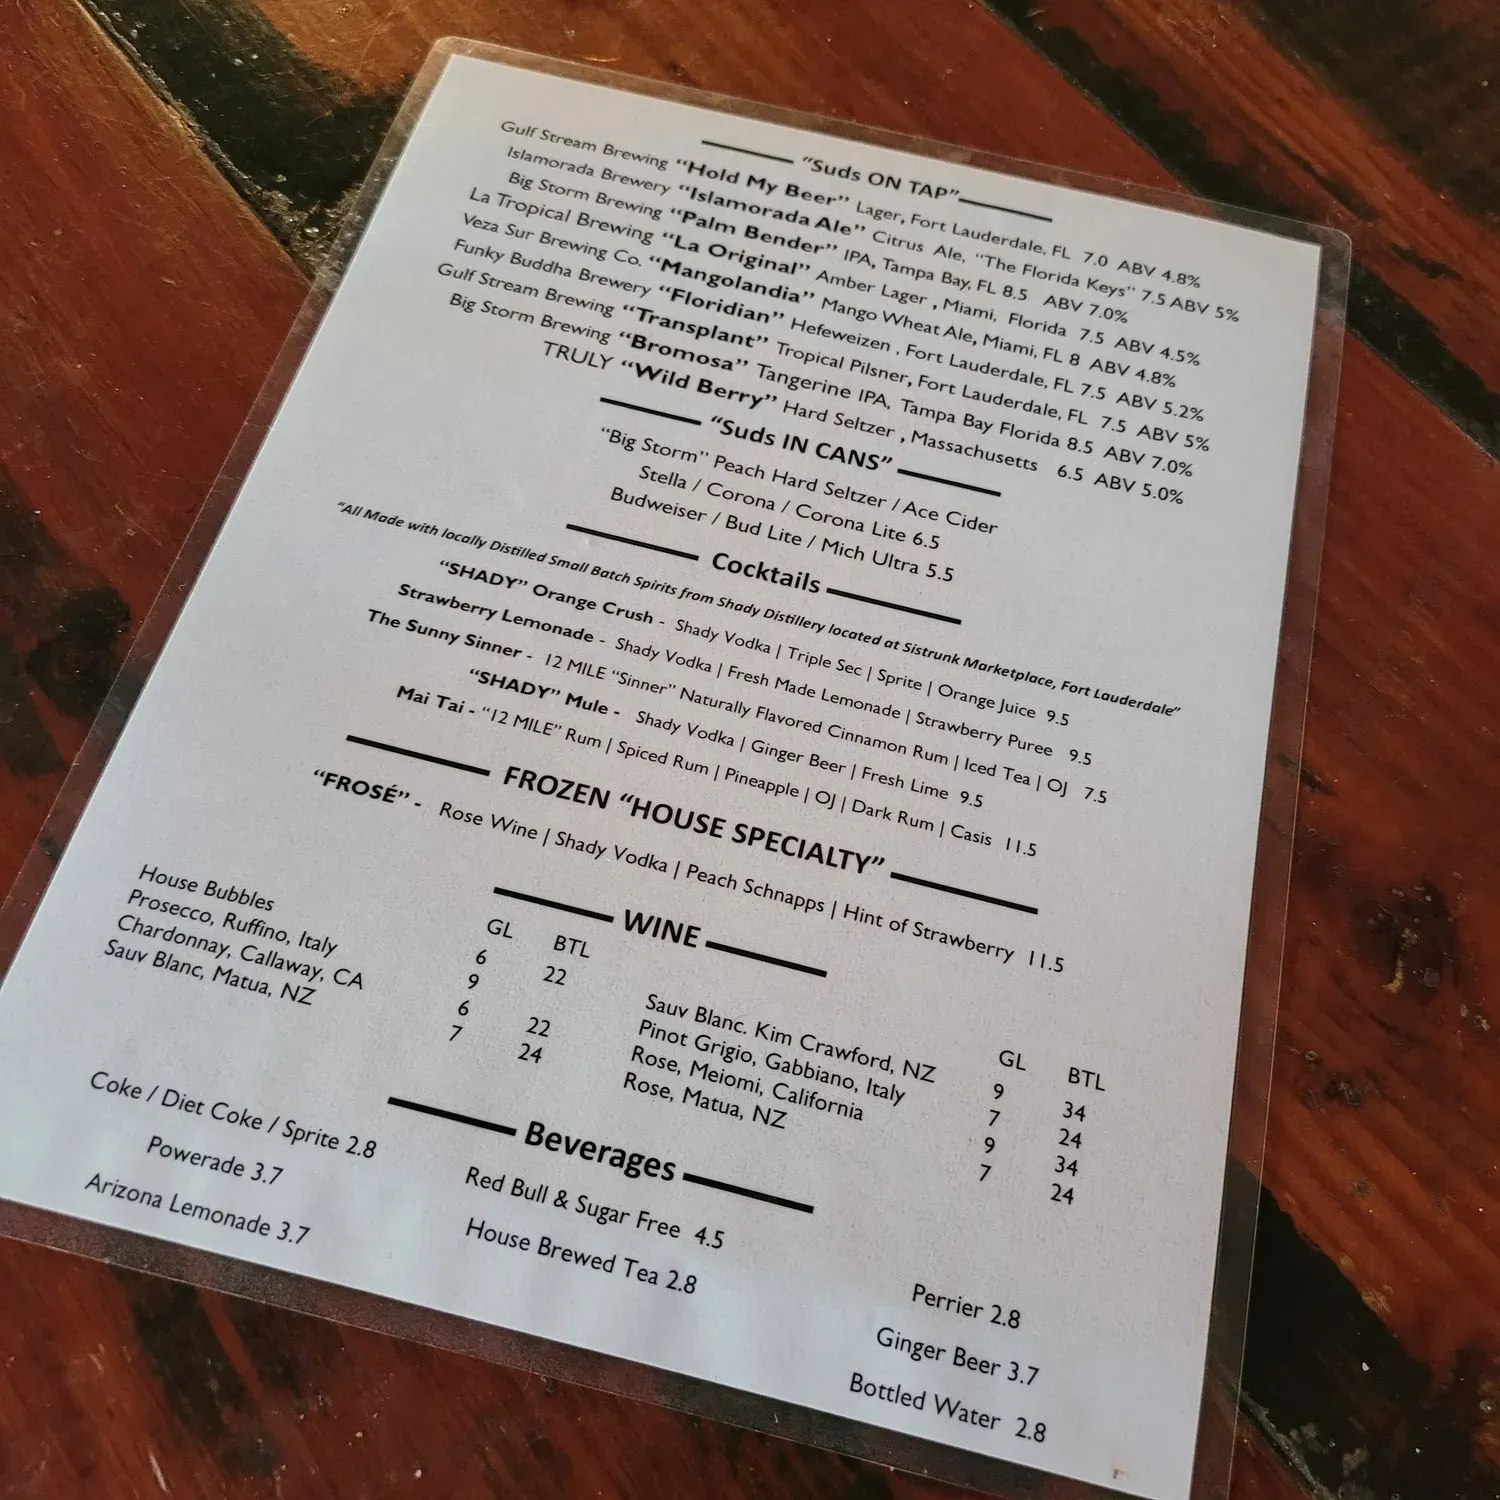 “Suds ON TAP”
Gulf Stream Brewing “Hold My Beer” Lager, Fort Lauderdale, FL 7.0 ABV 4.8%
Islamorada Brewery “Islamorada Ale” Citrus Ale, “The Florida Keys” 7.5 ABV 5%
Big Storm Brewing “Palm Bender” IPA, Tampa Bay, FL 8.5 ABV 7.0%
La Tropical Brewing “La Original” Amber Lager , Miami, Florida 7.5 ABV 4.5%
Veza Sur Brewing Co. “Mangolandia” Mango Wheat Ale, Miami, FL 8 ABV 4.8%
Funky Buddha Brewery “Floridian” Hefeweizen , Fort Lauderdale, FL 7.5 ABV 5.2%
Gulf Stream Brewing “Transplant” Tropical Pilsner, Fort Lauderdale, FL 7.5 ABV 5%
Big Storm Brewing “Bromosa” Tangerine IPA, Tampa Bay Florida 8.5 ABV 7.0%
TRULY “Wild Berry” Hard Seltzer , Massachusetts 6.5 ABV 5.0%
“Suds IN CANS”
“Big Storm” Peach Hard Seltzer / Ace Cider
Stella / Corona / Corona Lite 6.5
Budweiser / Bud Lite / Mich Ultra 5.5
Cocktails
“All Made with locally Distilled Small Batch Spirits from Shady Distillery located at Sistrunk Marketplace, Fort Lauderdale”
“SHADY” Orange Crush - Shady Vodka | Triple Sec | Sprite | Orange Juice 9.5
Strawberry Lemonade - Shady Vodka | Fresh Made Lemonade | Strawberry Puree 9.5
The Sunny Sinner - 12 MILE “Sinner” Naturally Flavored Cinnamon Rum | Iced Tea | OJ 7.5
“SHADY” Mule - Shady Vodka | Ginger Beer | Fresh Lime 9.5
Mai Tai - “12 MILE” Rum | Spiced Rum | Pineapple | OJ | Dark Rum | Casis 11.5
FROZEN “HOUSE SPECIALTY”
“FROSÉ” - Rose Wine | Shady Vodka | Peach Schnapps | Hint of Strawberry 11.5
WINE
GL BTL
House Bubbles 6 22
Prosecco, Ruffino, Italy 9
Chardonnay, Callaway, CA 6 22
Sauv Blanc, Matua, NZ 7 24
GL BTL
Sauv Blanc. Kim Crawford, NZ 9 34
Pinot Grigio, Gabbiano, Italy 7 24
Rose, Meiomi, California 9 34
Rose, Matua, NZ 7 24
Beverages
Coke / Diet Coke / Sprite 2.8
Powerade 3.7
Arizona Lemonade 3.7
Red Bull & Sugar Free 4.5
House Brewed Tea 2.8
Perrier 2.8
Ginger Beer 3.7
Bottled Water 2.8